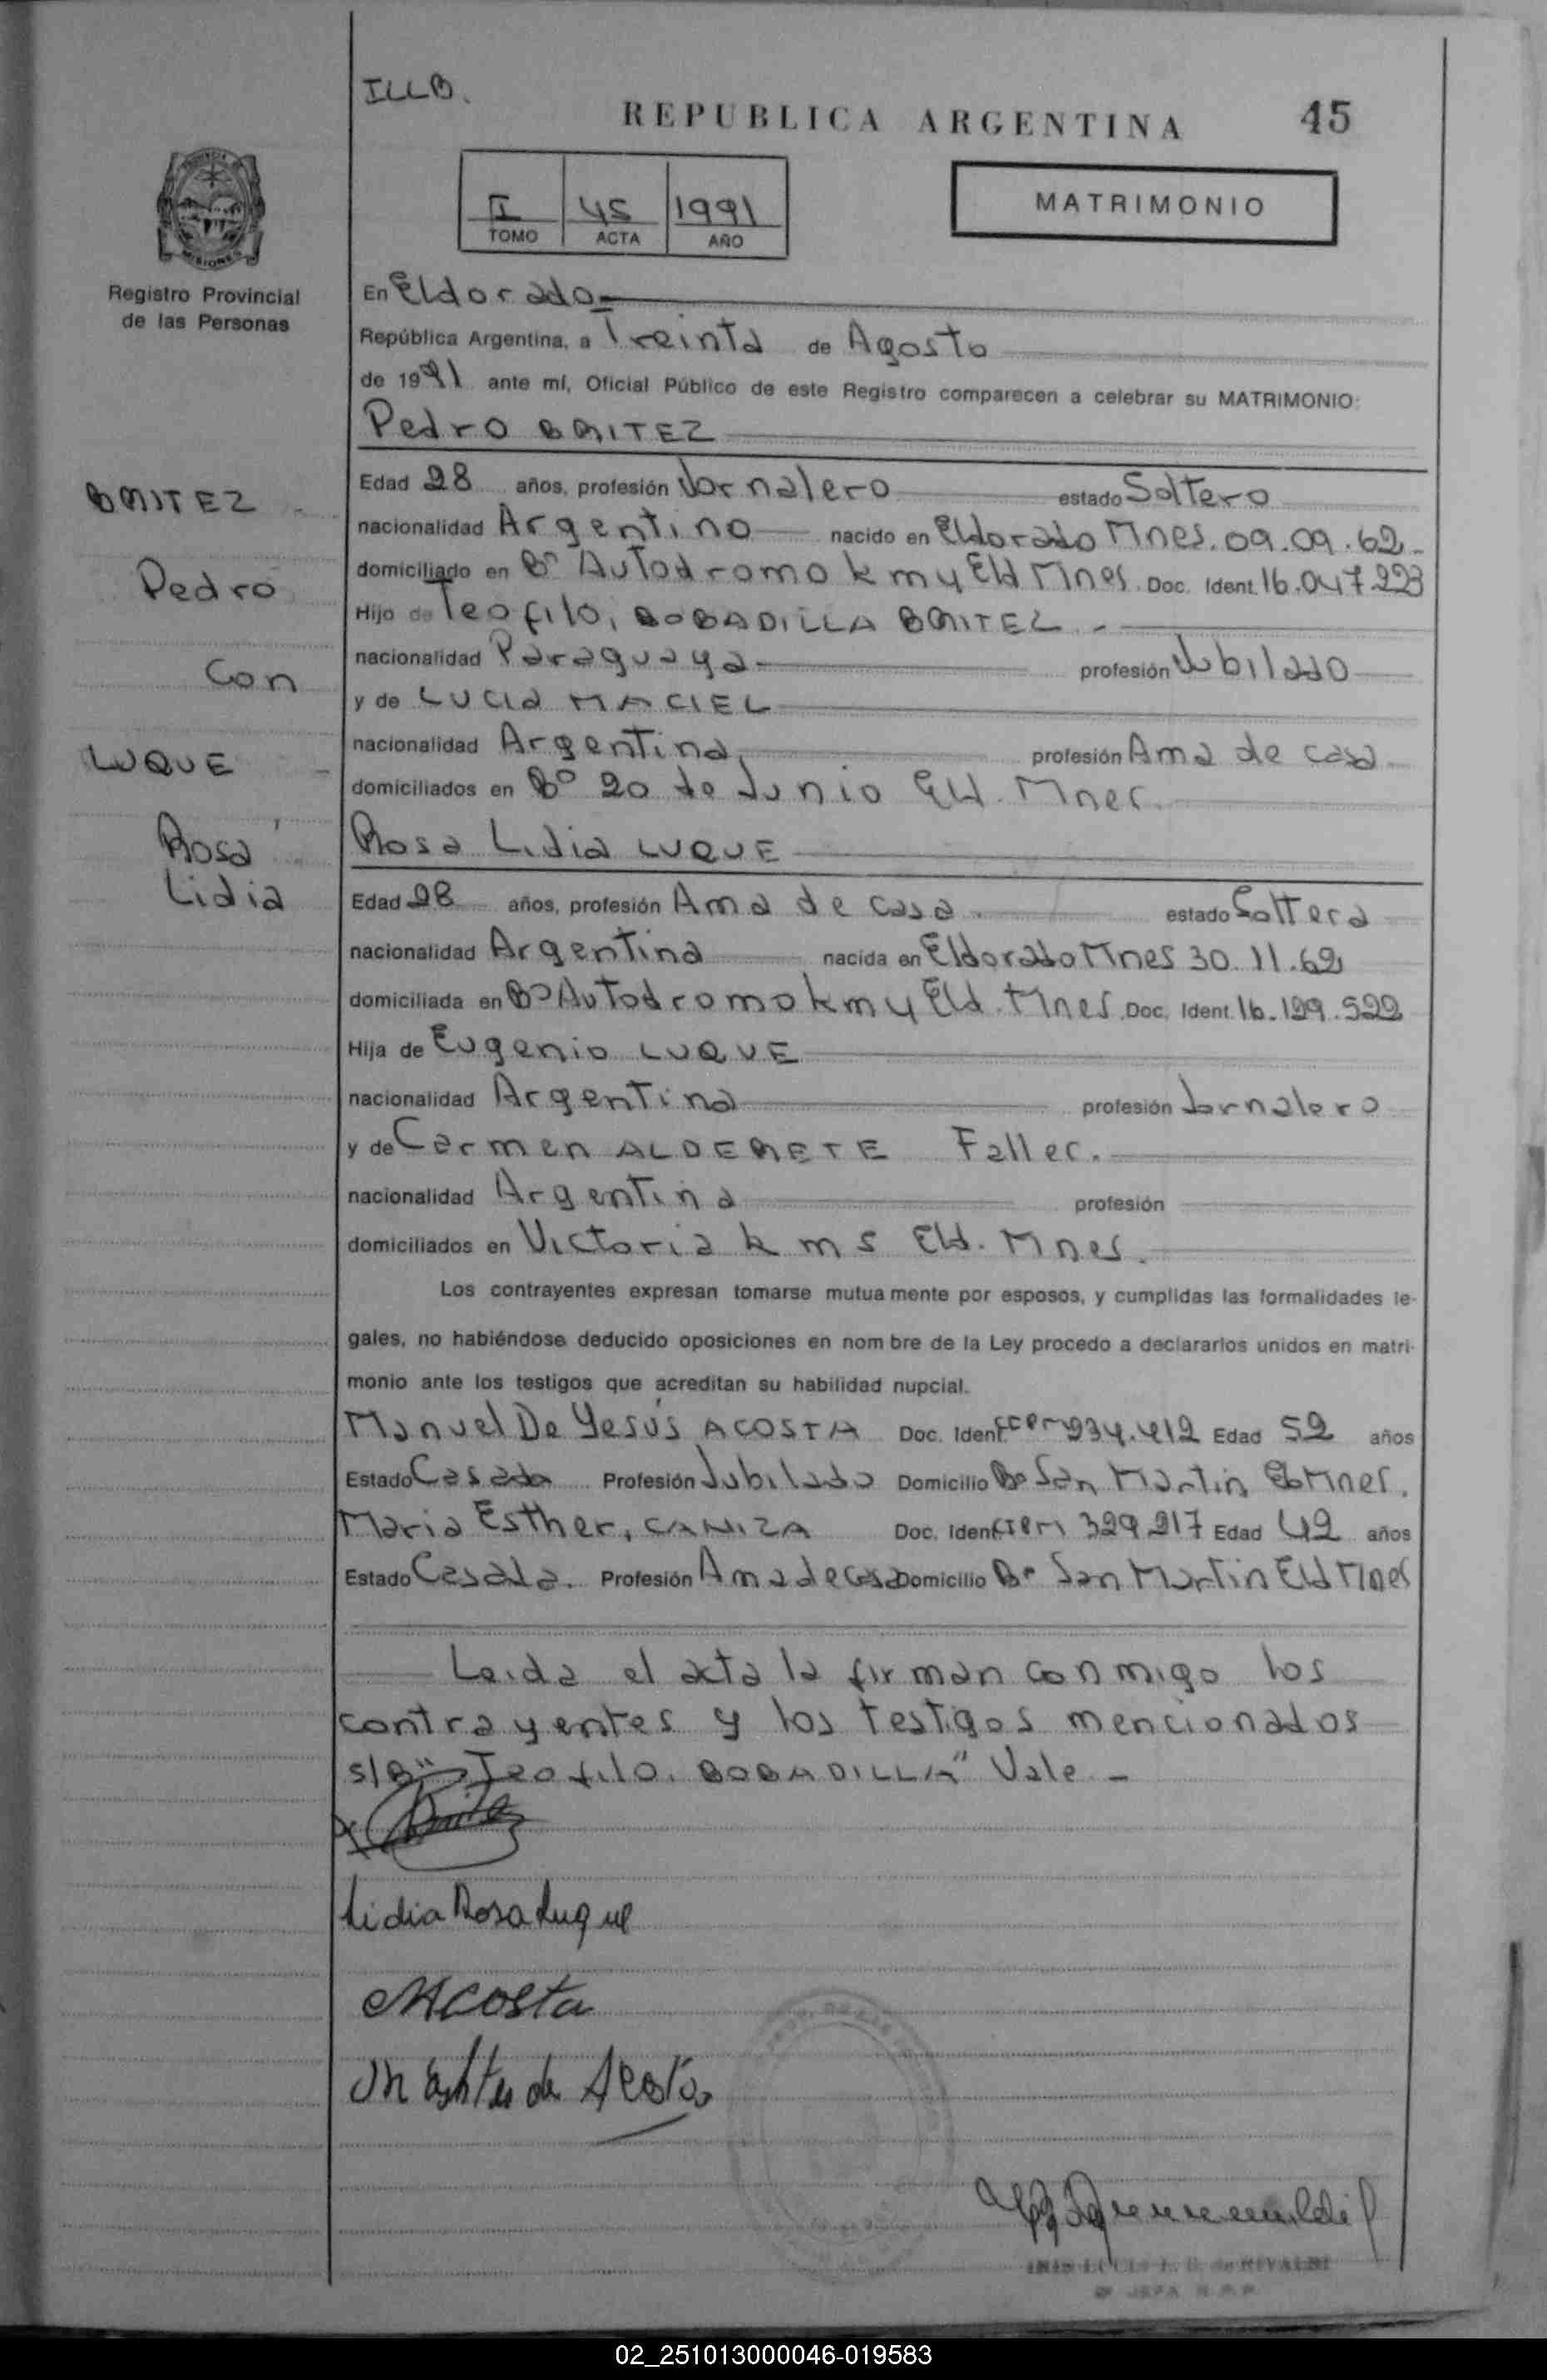 ILLB.
REPUBLICA ARGENTINA 45
I 45 1991
TOMO ACTA AÑO
MATRIMONIO
Registro Provincial
de las Personas
En Eldorado
República Argentina, a Treinta de Agosto
de 1991 ante mí, Oficial Público de este Registro comparecen a celebrar su MATRIMONIO:
Pedro BRITEZ
BRITEZ
Pedro
Con
LUQUE
Rosa
Lidia
Edad 28 años, profesión Jornalero estado Soltero
nacionalidad Argentino nacido en Eldorado Mnes. 09.09.62
domiciliado en Bº Autodromo km 4 Eld Mnes. Doc. Ident. 16.047.223
Hijo de Teofilo, BOBADILLA BRITEZ.-
nacionalidad Paraguaya profesión Jubilado
y de Lucia MACIEL
nacionalidad Argentina profesión Ama de casa
domiciliados en Bº 20 de Junio Eld. Mnes.
Rosa Lidia LUQUE
Edad 28 años, profesión Ama de casa. estado Soltera
nacionalidad Argentina nacida en Eldorado Mnes 30.11.62
domiciliada en Bº Autodromo km 4 Eld. Mnes. Doc. Ident. 16.129.522
Hija de Eugenio LUQUE
nacionalidad Argentina profesión Jornalero
y de Carmen ALDERETE Fallec.
nacionalidad Argentina profesión
domiciliados en Victoria km 5 Eld. Mnes.
Los contrayentes expresan tomarse mutuamente por esposos, y cumplidas las formalidades le-
gales, no habiéndose deducido oposiciones en nombre de la Ley procedo a declararlos unidos en matri-
monio ante los testigos que acreditan su habilidad nupcial.
Manuel De Yesús ACOSTA Doc. Ident. 234.412 Edad 52 años
Estado Casado Profesión Jubilado Domicilio Bº San Martin Eld Mnes.
Maria Esther, CANIZA Doc. Ident. 329.217 Edad 42 años
Estado Casada. Profesión Ama de casa Domicilio Bº San Martin Eld Mnes
Leida el acta la firman conmigo los
contrayentes y los testigos mencionados
s/B "Teofilo, BOBADILLA" Vale-
Lidia Rosa Luque
MAcosta
M Esther de Acosta
de RIVALDI
JEFA R.P.P.
02_251013000046-019583